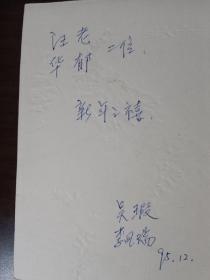 汪老
华郁 二位、
新年之禧
吴瑕
李
95.12.